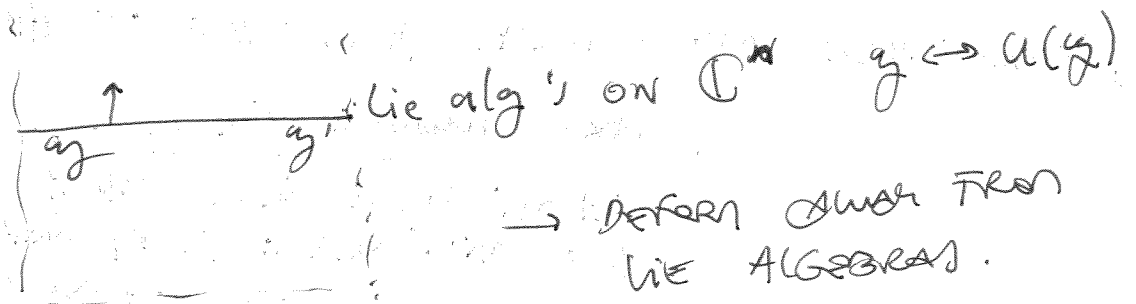 Lie alg's on ℂⁿ 𝔤 ↔ U(𝔤)
𝔤 𝔤'
→ DEFORM AWAY FROM
LIE ALGEBRAS.